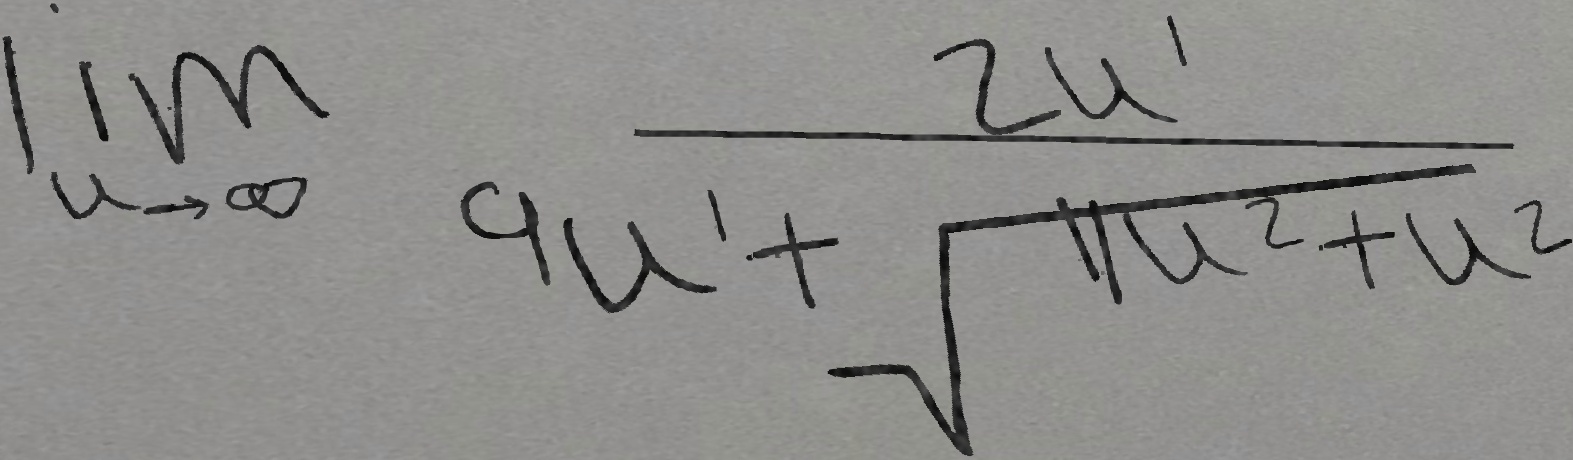 \lim_{u \to \infty} \frac{2u^1}{9u^1 + \sqrt{11u^2 + u^2}}